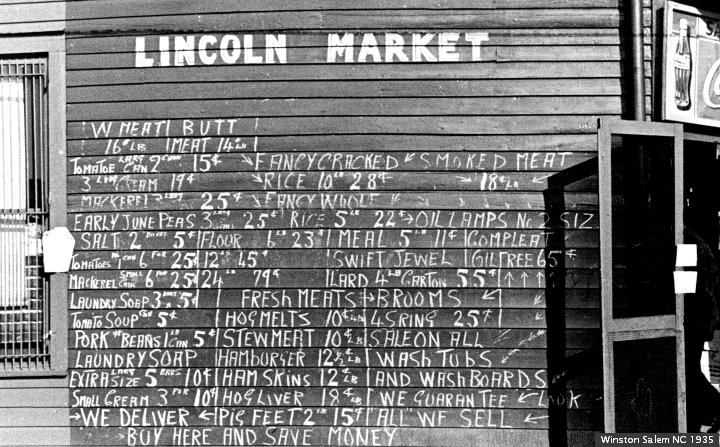 LINCOLN MARKET
W MEAT BUTT
16¢ LB MEAT 14¢ LB
TOMATOE LARG CAN 2 CANS 15¢ FANCY CRACKED SMOKED MEAT
3 CREAM 19¢ RICE 10 LB 28¢ 18¢ LB
MACKEREL 25¢ FANCY WHOLE
EARLY JUNE PEAS 3 25¢ RICE 5 LB 22¢ OIL LAMPS NO 2 SIZ
SALT 2 BOXES 5¢ FLOUR 6 LB 23¢ MEAL 5 LB 11¢ COMPLEAT
TOMATOES CAN 6 FOR 25¢ 12 LBS 45¢ SWIFT JEWEL GILTREE 65¢
MACKEREL SMALL CANS 6 FOR 25¢ 24 LB 79¢ LARD 4 LB CARTON 55¢
LAUNDRY SOEP 3 BARS 5¢ FRESH MEATS BROOMS
TOMATO SOUP CAN 5¢ HOG MELTS 10¢ LB 4 SRING 25¢
PORK & BEANS LB CAN 5¢ STEW MEAT 10¢ LB SALE ON ALL
LAUNDRY SOAP HAMBURGER 12½¢ LB WASH TUBS
EXTRA SIZE 5 BARS 10¢ HAM SKINS 12¢ LB AND WASH BOARDS
SMALL CREAM 3 FOR 10¢ HOG LIVER 18¢ LB WE GUARANTEE LOOK
WE DELIVER PIG FEET 2 LB 15¢ "ALL" WE SELL
BUY HERE AND SAVE MONEY
Winston Salem NC 1935